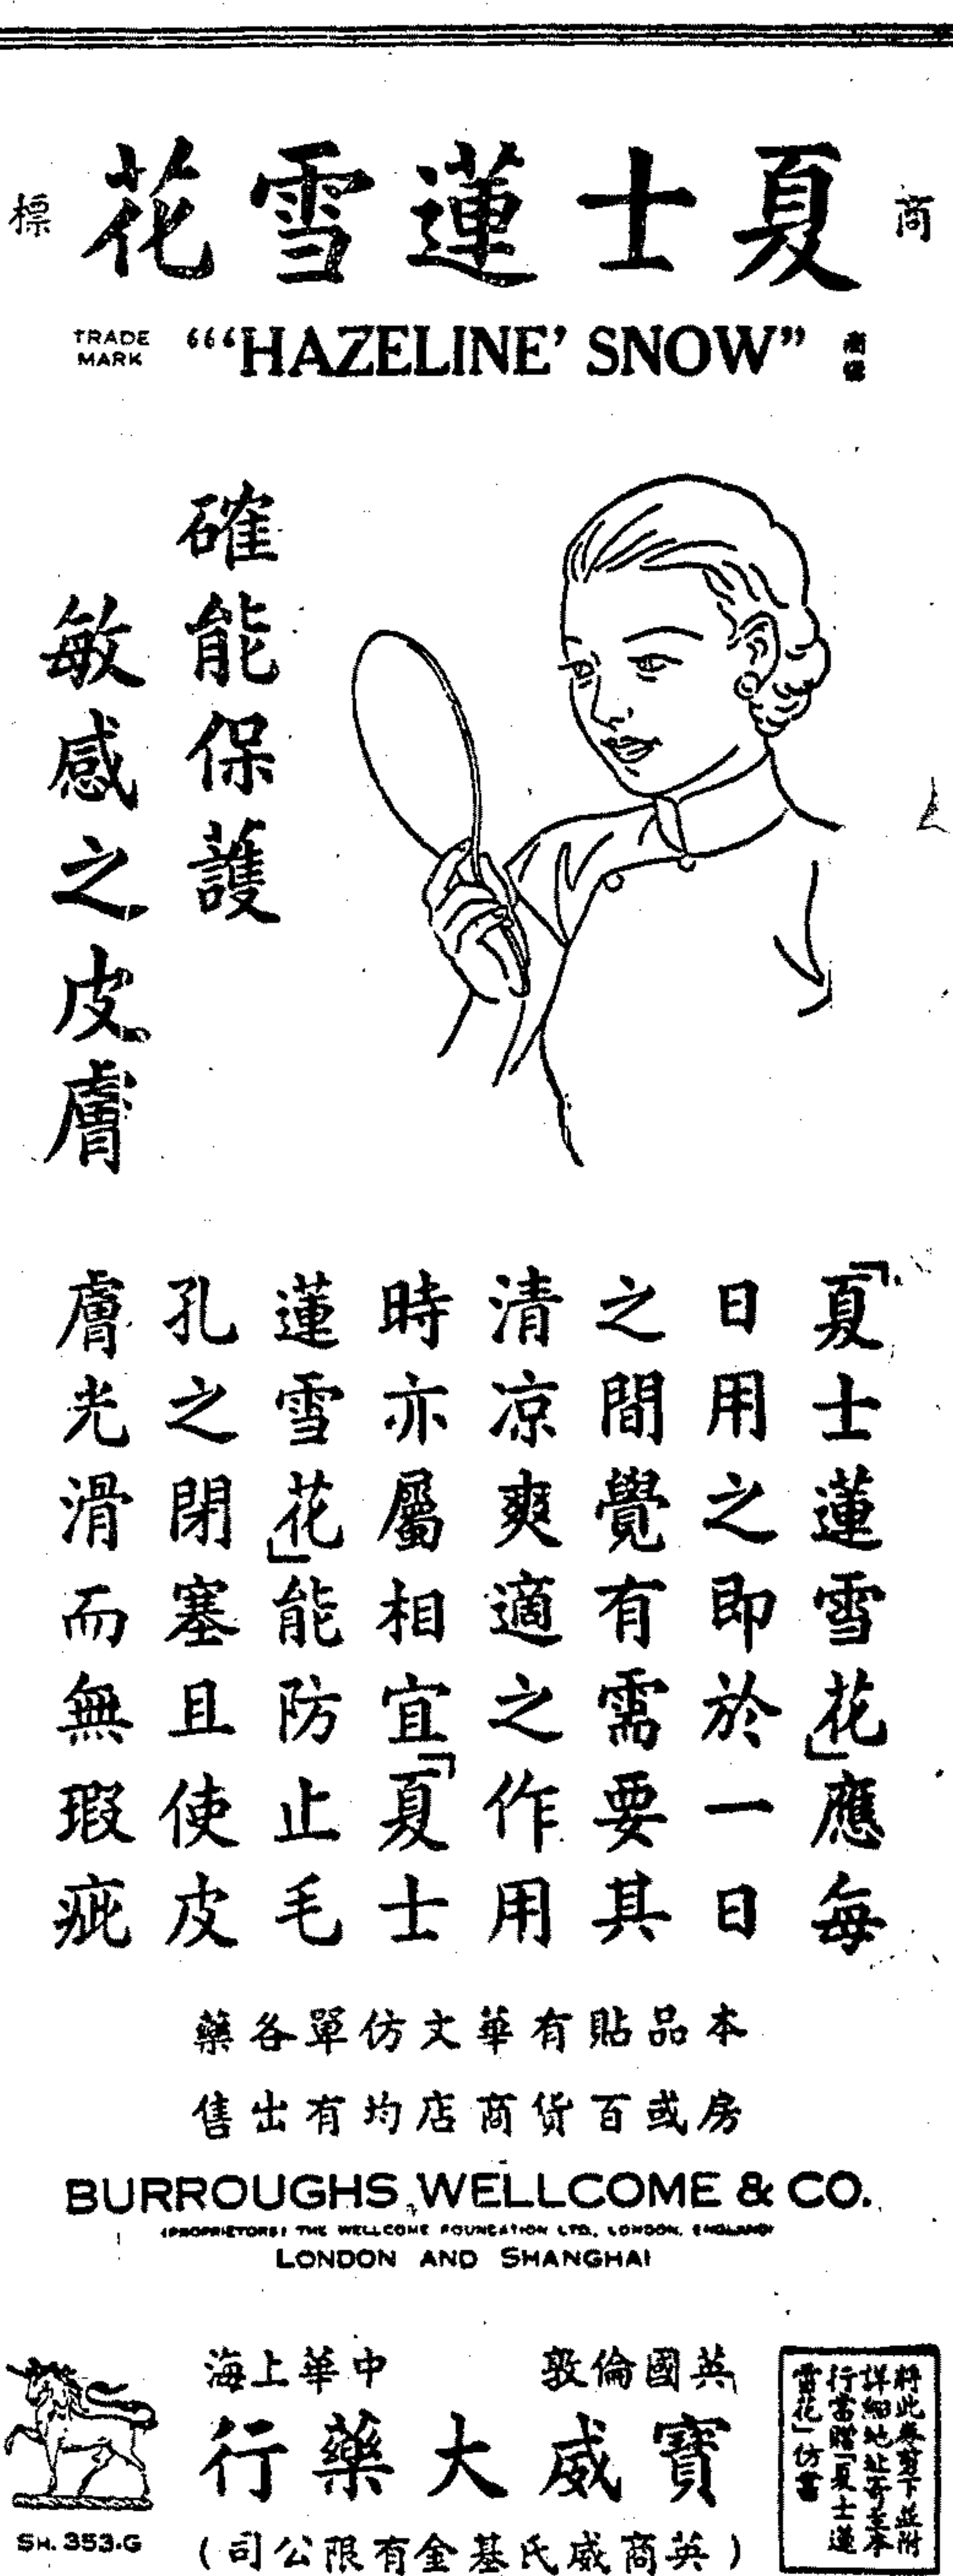 商標
夏士蓮雪花
TRADE MARK
“‘HAZELINE’ SNOW”
商標
確能保護
敏感之皮膚
「夏士蓮雪花」應每
日用之即於一日
之間覺有需要其
清凉爽適之作用
時亦屬相宜「夏士
蓮雪花」能防止毛
孔之閉塞且使皮
膚光滑而無瑕疵
本品貼有華文仿單各藥
房或百貨商店均有出售
BURROUGHS WELLCOME & CO.
(PROPRIETORS: THE WELLCOME FOUNDATION LTD., LONDON, ENGLAND)
LONDON AND SHANGHAI
英國倫敦 中華上海
寶威大藥行
(英商威氏基金有限公司)
SH. 353.G
將此券剪下並附
詳細地址寄至本
行當贈「夏士蓮
雪花」仿單